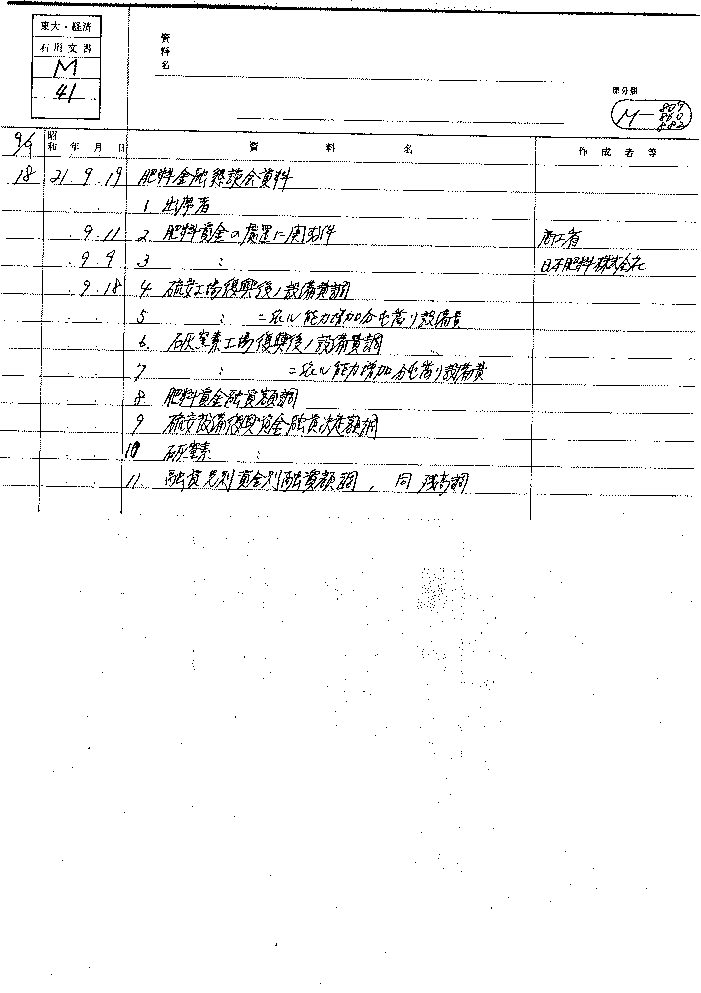 東大・経済
石川文書
M
41
資料名
原分類
M-809
860
882
昭和 年 月 日 資料名 作成者等
18 21. 9. 19 肥料金融懇談会資料
1 出席者
. 9. 11 2 肥料資金の措置に関する件 商工省
. 9. 9 3 〃 日本肥料株式会社
. 9. 18 4 硫安工場復興後ノ設備費調
5 〃 ニ依ル能力増加分屯当り設備費
6. 石灰窒素工場復興後ノ設備費調
7 〃 ニ依ル能力増加分屯当り設備費
8 肥料資金融資額調
9 硫安設備復興資金融資決定額調
10 石灰窒素 〃
11 融資先別資金別融資額調, 同残高調